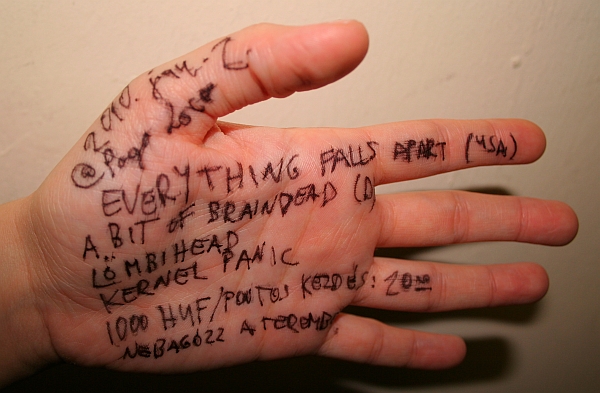 2010. jan. 2.
@ Pogo Loca
EVERYTHING FALLS APART (USA)
A BIT OF BRAINDEAD (D)
LÖMBIHEAD
KERNEL PANIC
1000 HUF/PONTOS KEZDÉS: 20:00
NE BAGÓZZ A TEREMB.